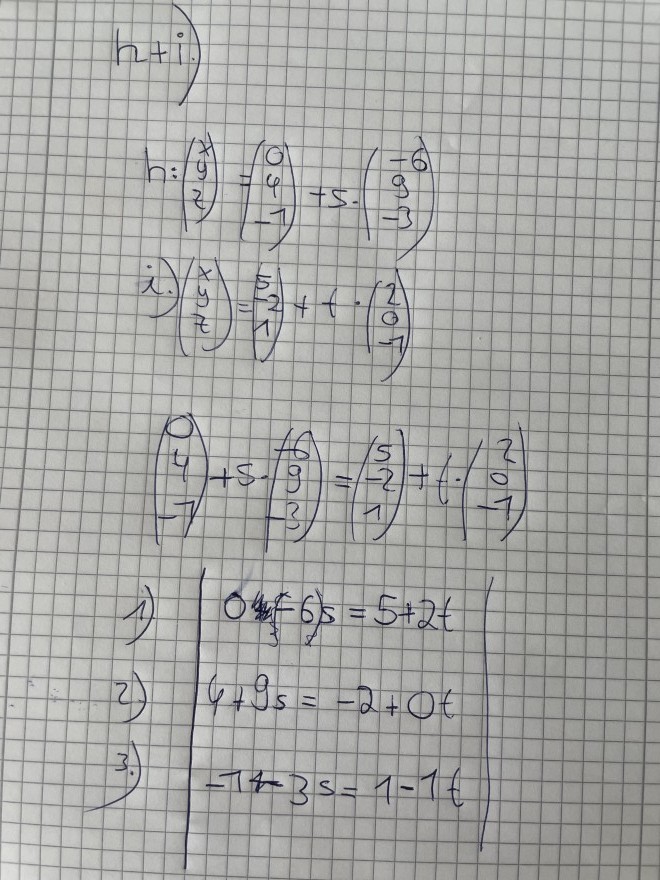 h+i)
h: (x y z) = (0 4 -1) + s · (-6 9 -3)
i.) (x y z) = (5 -2 1) + t · (2 0 -1)
(0 4 -1) + s · (-6 9 -3) = (5 -2 1) + t · (2 0 -1)
1) 0 -6)s = 5+2t
2) 4+9s = -2+0t
3.) -1-3s = 1-1t